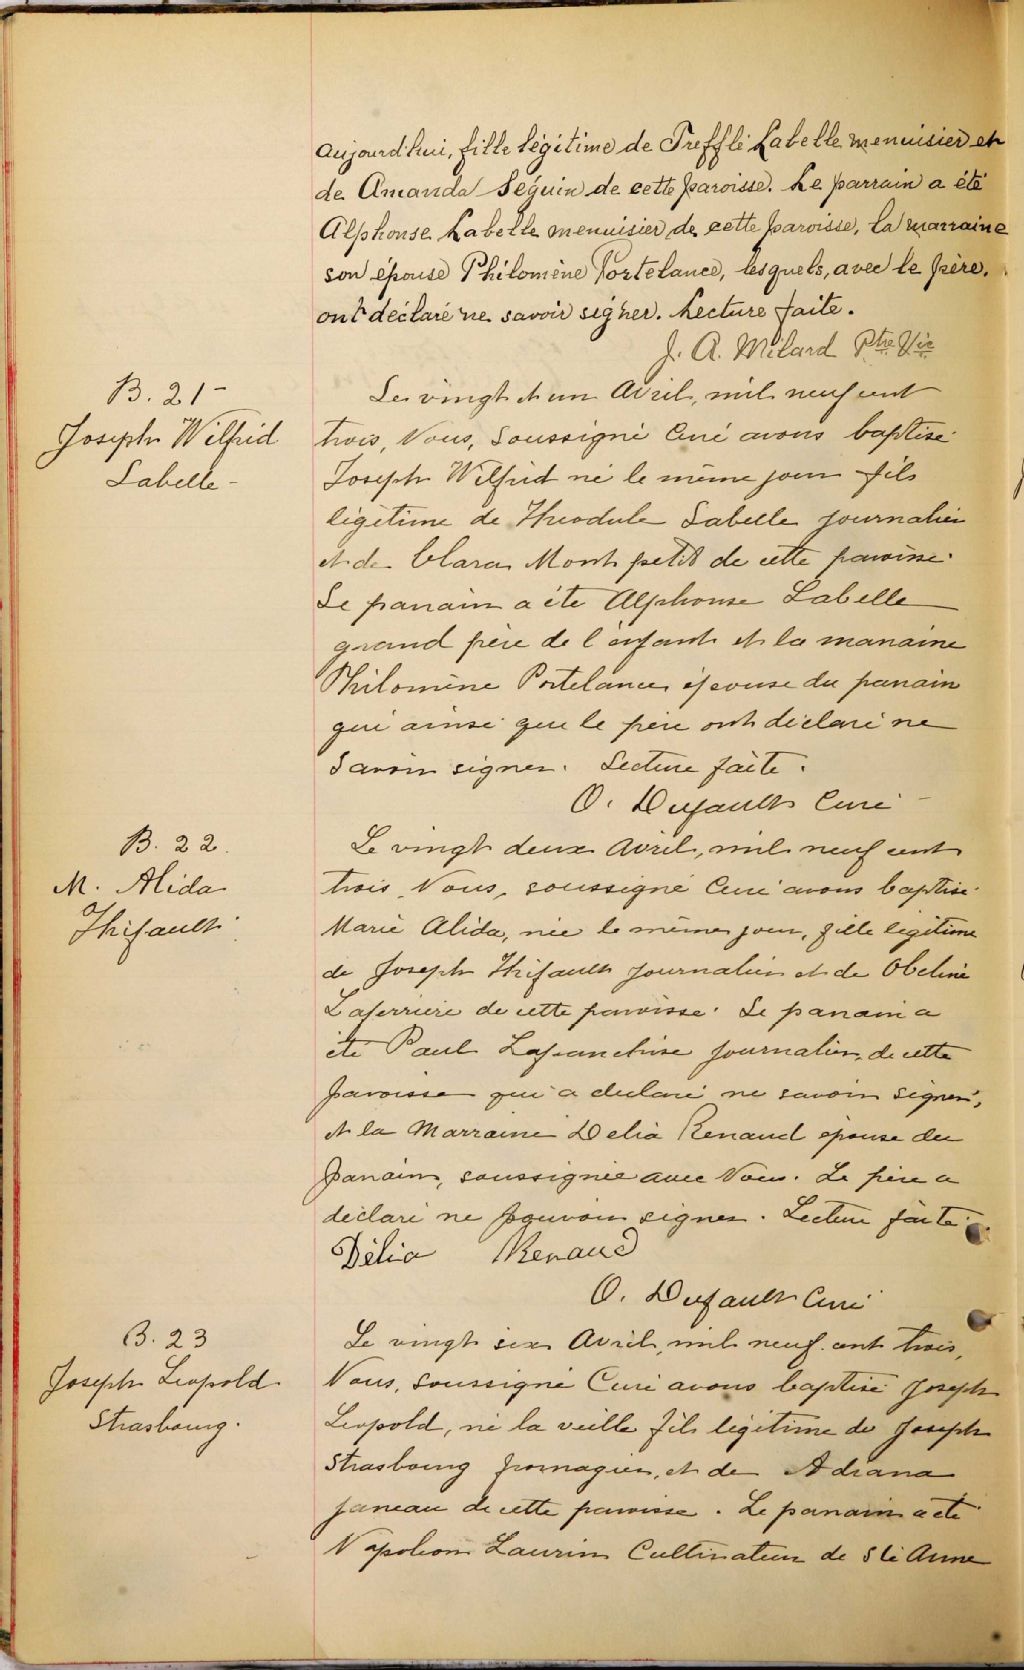 aujourd'hui, fille légitime de Trefflé Labelle menuisier et
de Amanda Séguin de cette paroisse. Le parrain a été
Alphonse Labelle menuisier de cette paroisse, la marraine
son épouse Philomène Portelance, lesquels, avec le père,
ont déclaré ne savoir signer. Lecture faite.
J. A. Milard Ptre Vic
B. 21
Joseph Wilfrid
Labelle
Le vingt et un Avril, mil neuf cent
trois, Nous, soussigné Curé avons baptisé
Joseph Wilfrid né le même jour fils
légitime de Théodule Labelle journalier
et de Clara Montpetit de cette paroisse.
Le parrain a été Alphonse Labelle
grand père de l'enfant et la marraine
Philomène Portelance épouse du parrain
qui ainsi que le père ont déclaré ne
savoir signer. Lecture faite.
O. Dufault Curé
B. 22.
M. Alida
Thifault
Le vingt deux Avril, mil neuf cent
trois, Nous, soussigné Curé avons baptisé
Marie Alida, née le même jour, fille légitime
de Joseph Thifault journalier et de Obeline
Laferrière de cette paroisse. Le parrain a
été Paul Lafranchise journalier, de cette
paroisse qui a déclaré ne savoir signer,
et la Marraine Delia Renaud épouse du
parrain, soussignée avec Nous. Le père a
déclaré ne pouvoir signer. Lecture faite.
Délia Renaud
O. Dufault Curé
B. 23
Joseph Leopold
Strasbourg.
Le vingt six Avril, mil neuf cent trois,
Nous, soussigné Curé avons baptisé Joseph
Leopold, né la veille fils légitime de Joseph
Strasbourg fromagier, et de Adriana
Juneau de cette paroisse. Le parrain a été
Napoléon Laurin Cultivateur de Ste Anne